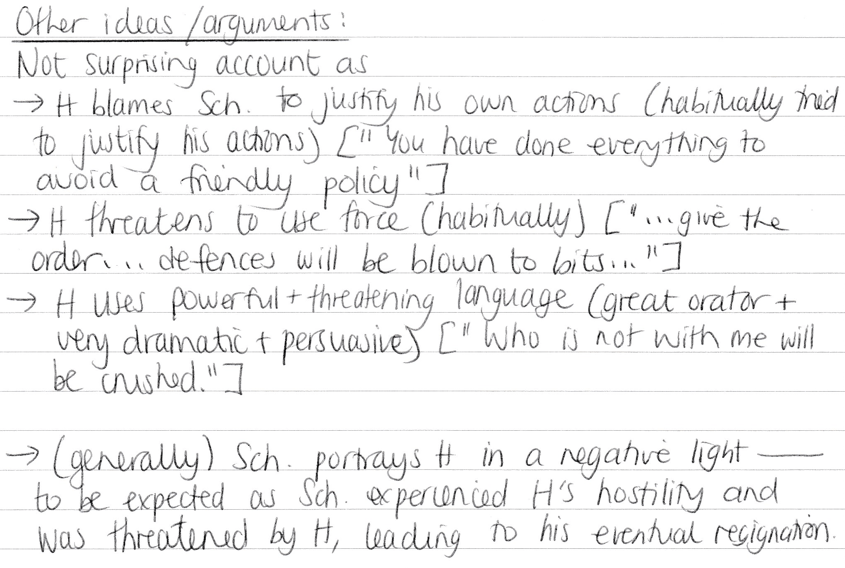 Other ideas/arguments:
Not surprising account as
→ H blames Sch. to justify his own actions (habitually tried
to justify his actions) ["You have done everything to
avoid a friendly policy"]
→ H threatens to use force (habitually) ["...give the
order... defences will be blown to bits..."]
→ H uses powerful + threatening language (great orator +
very dramatic + persuasive) ["Who is not with me will
be crushed."]
→ (generally) Sch. portrays H in a negative light —
to be expected as Sch. experienced H's hostility and
was threatened by H, leading to his eventual resignation.